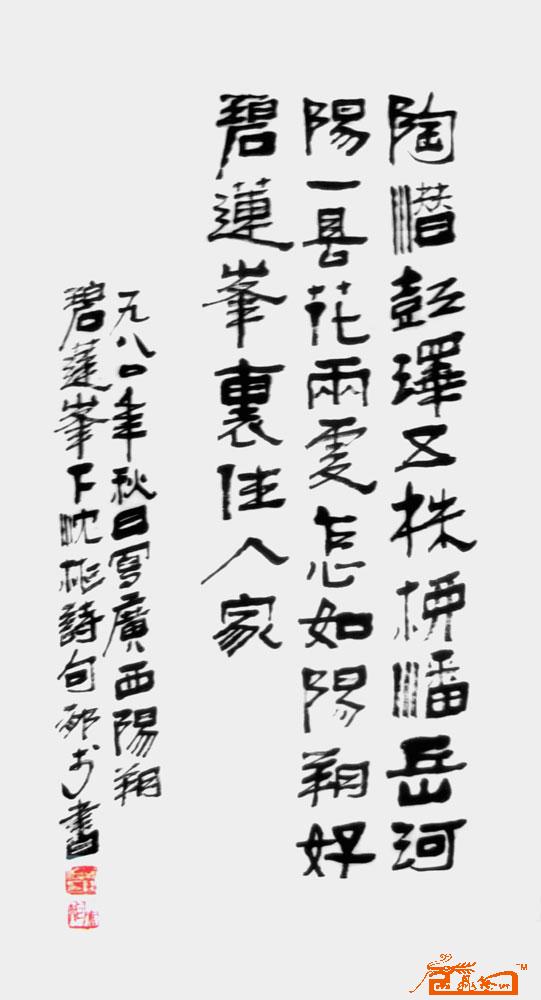 陶潛彭澤五株柳潘岳河
陽一县花兩處怎如陽朔好
碧蓮峯裏住人家
一九八〇年秋日寫廣西陽朔
碧蓮峯下沈彬詩句書